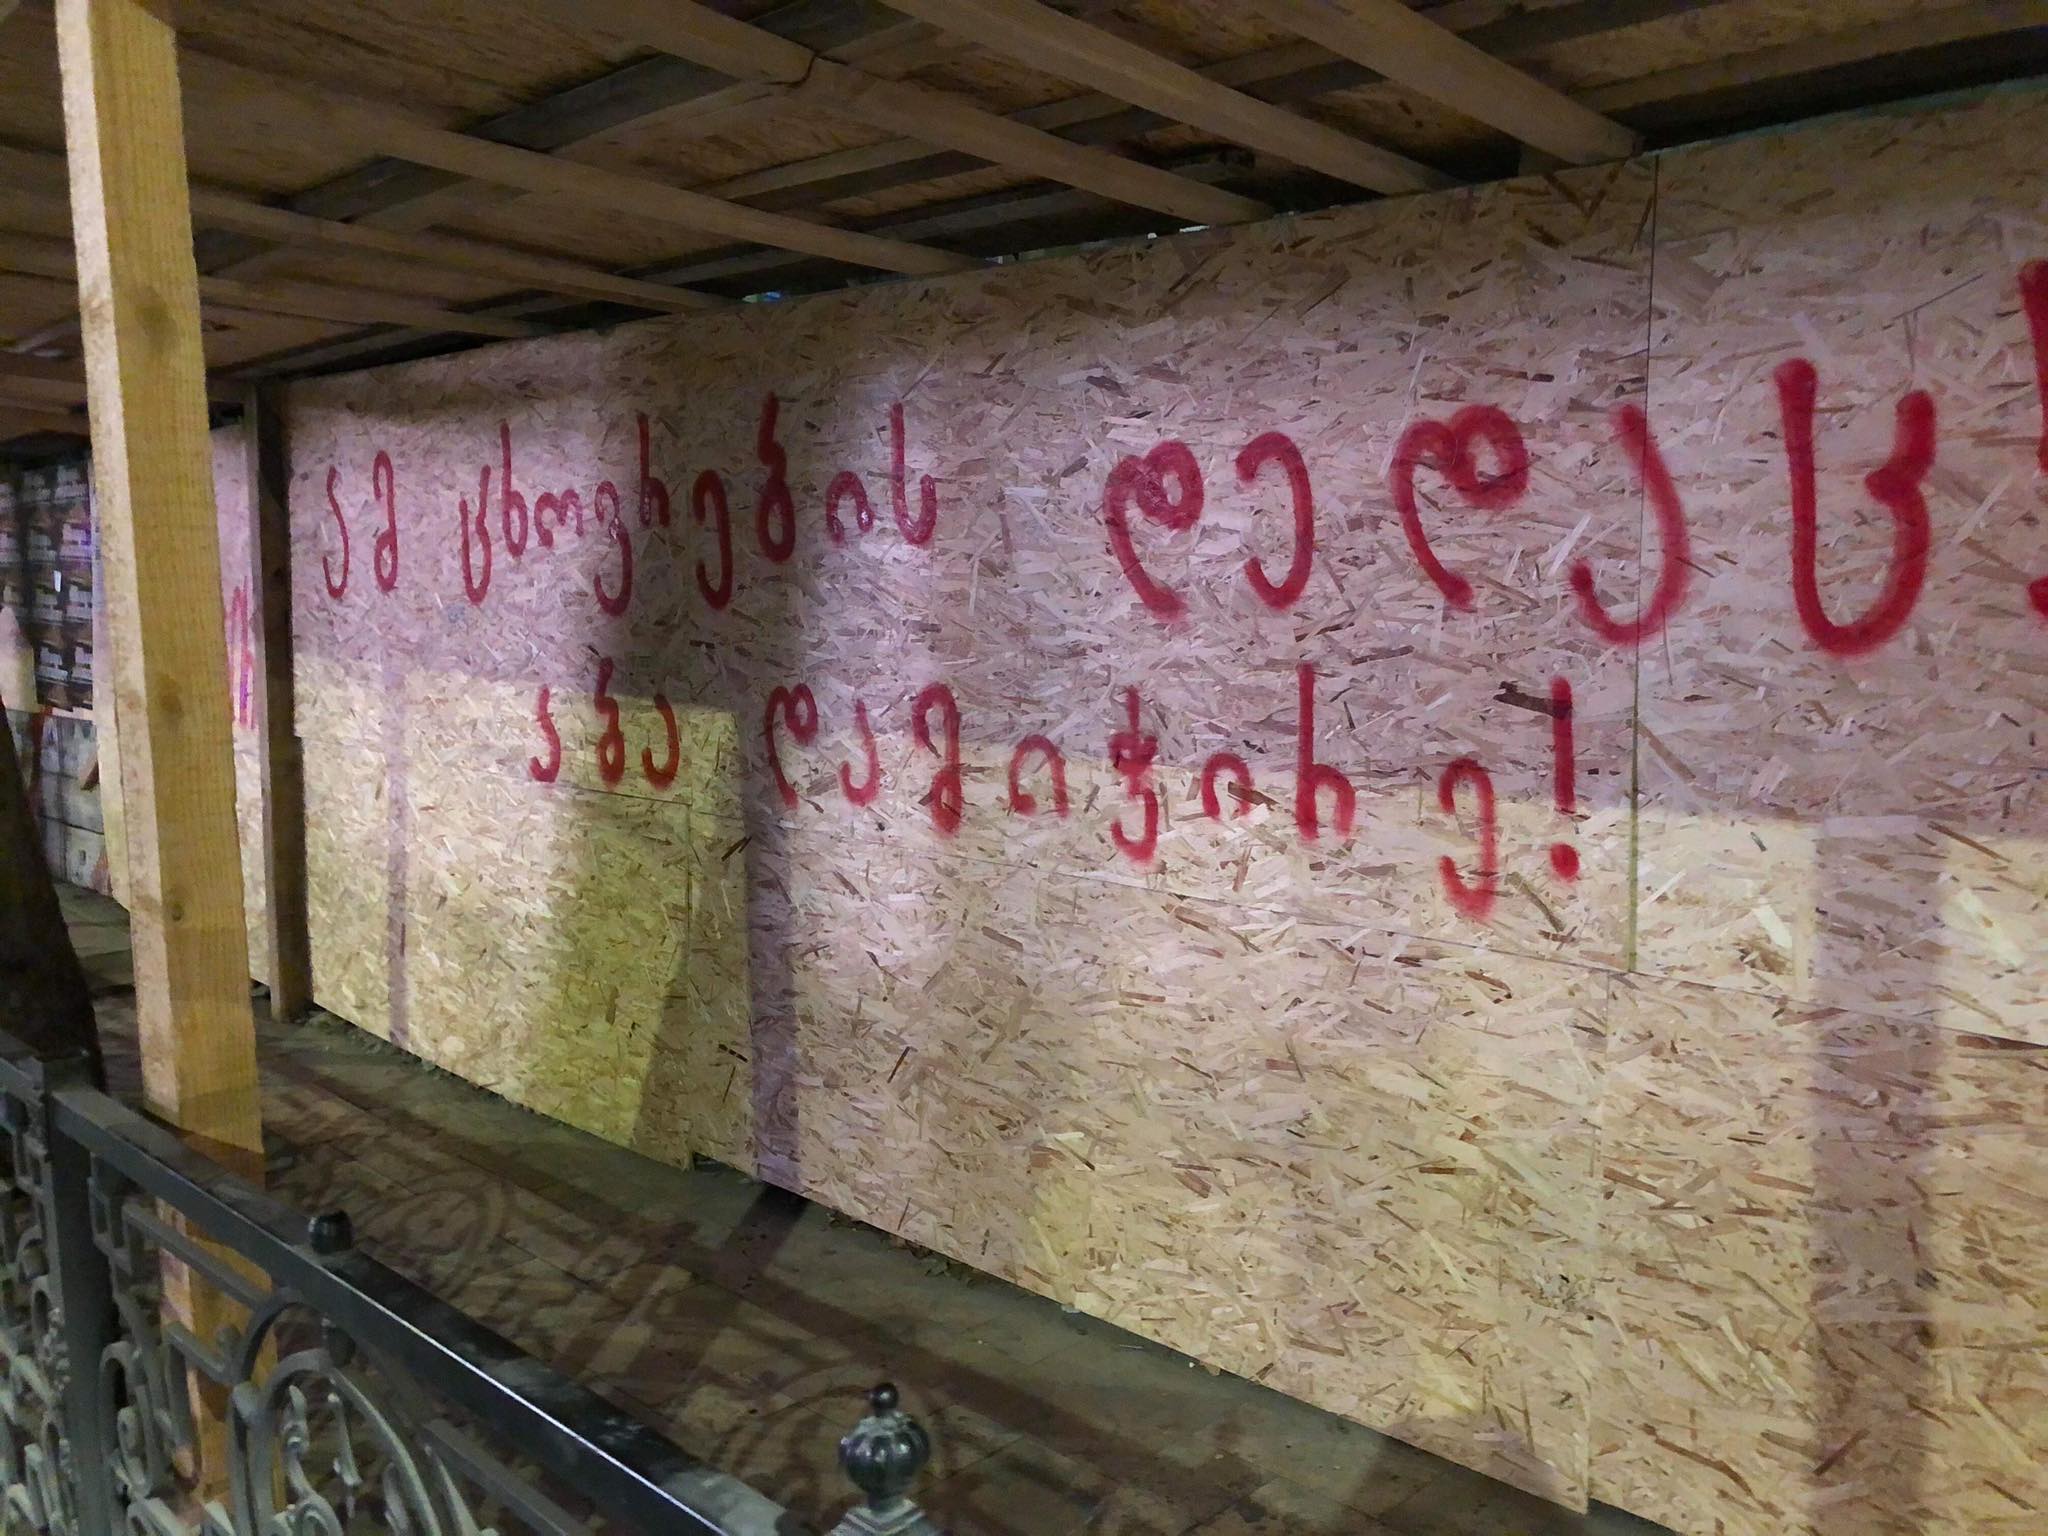 ამ ცხოვრების დედაც!
აბა დამიჭირე!